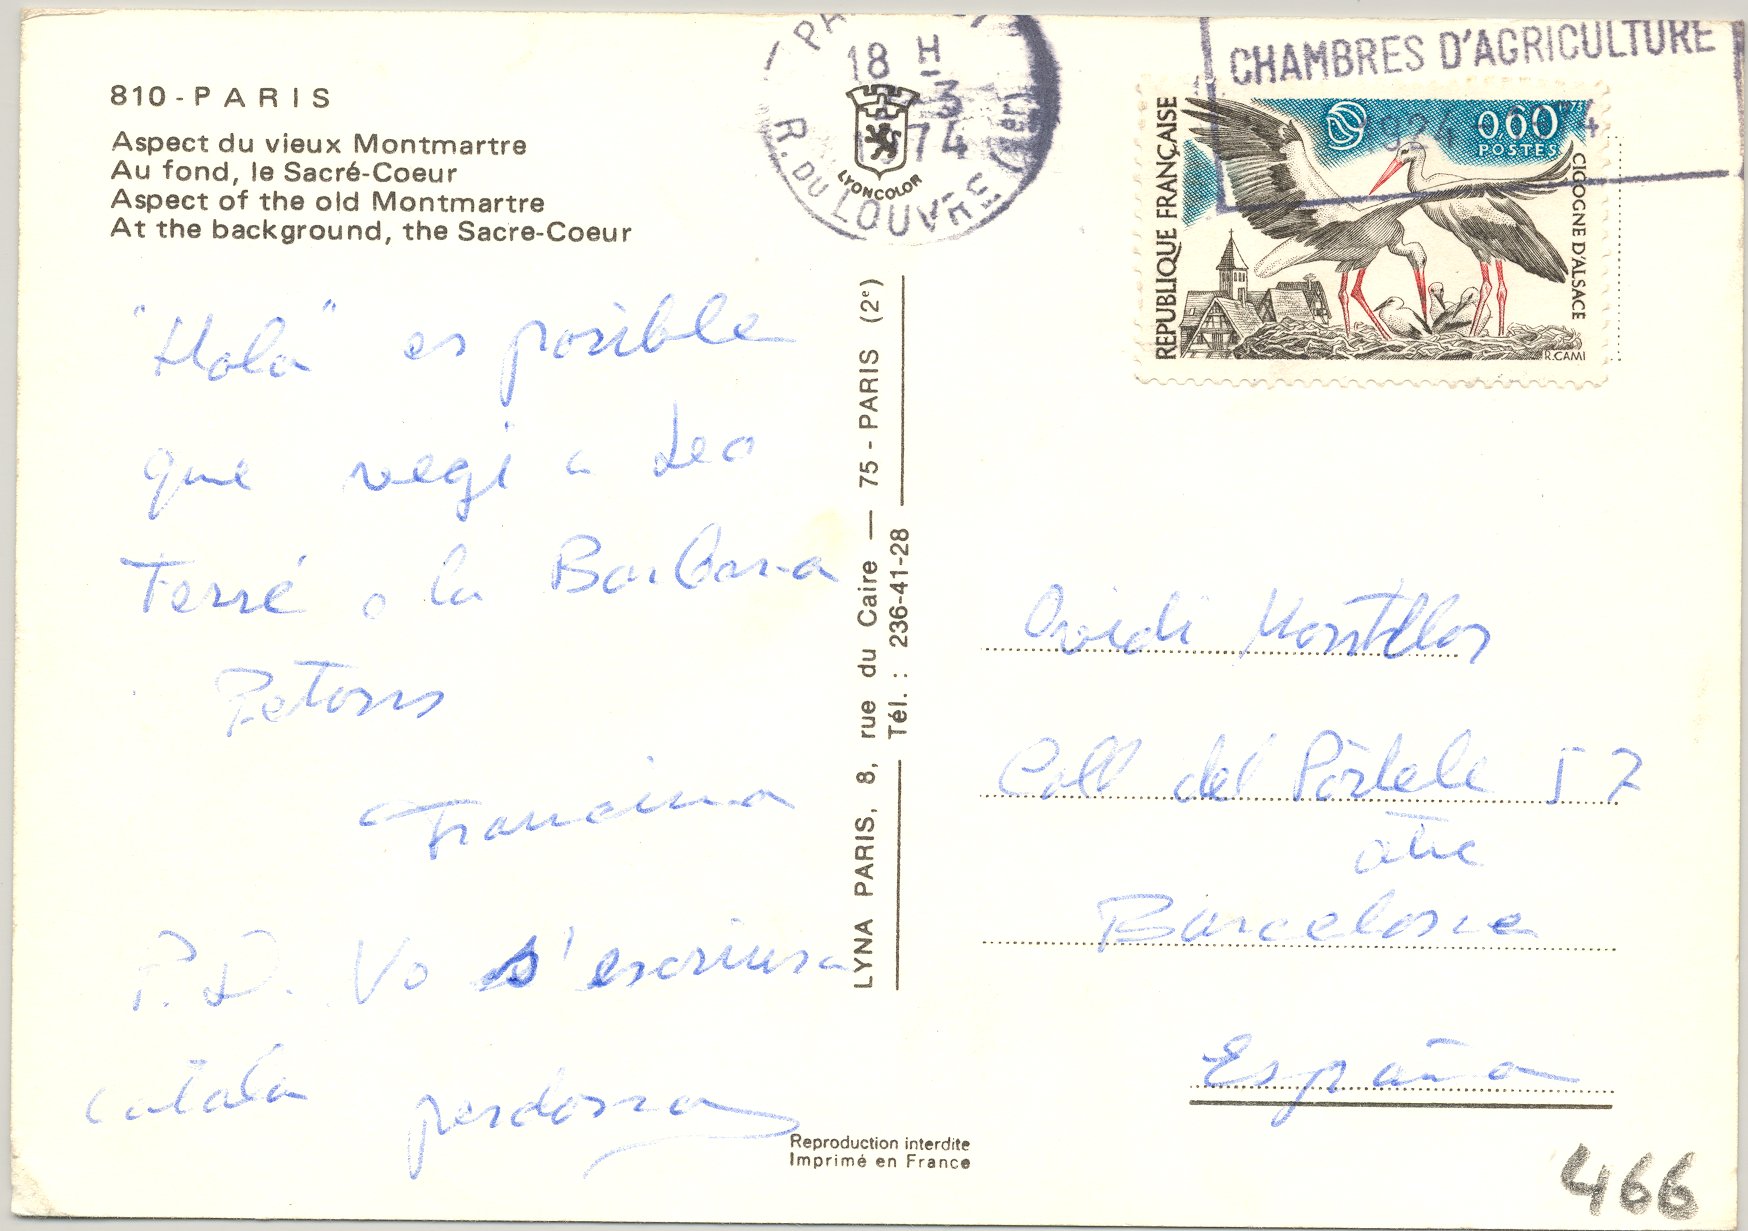 810 - PARIS
Aspect du vieux Montmartre
Au fond, le Sacré-Coeur
Aspect of the old Montmartre
At the background, the Sacre-Coeur
"Hola" es posible
que vegi a Leo
Ferré o la Barbara
Petons
Francina
P.D. Vo s'escriura
català perdona
LYNA PARIS, 8, rue du Caire — 75 - PARIS (2e)
Tél. : 236-41-28
Reproduction interdite
Imprimé en France
18 H
3
1974
R. DU LOUVRE (1er)
LYONCOLOR
CHAMBRES D'AGRICULTURE
1924
RÉPUBLIQUE FRANÇAISE
0,60
POSTES
CIGOGNE D'ALSACE
R.CAMI
Ovidi Montllor
Coll del Pòrtele 57
àtic
Barcelona
España
466